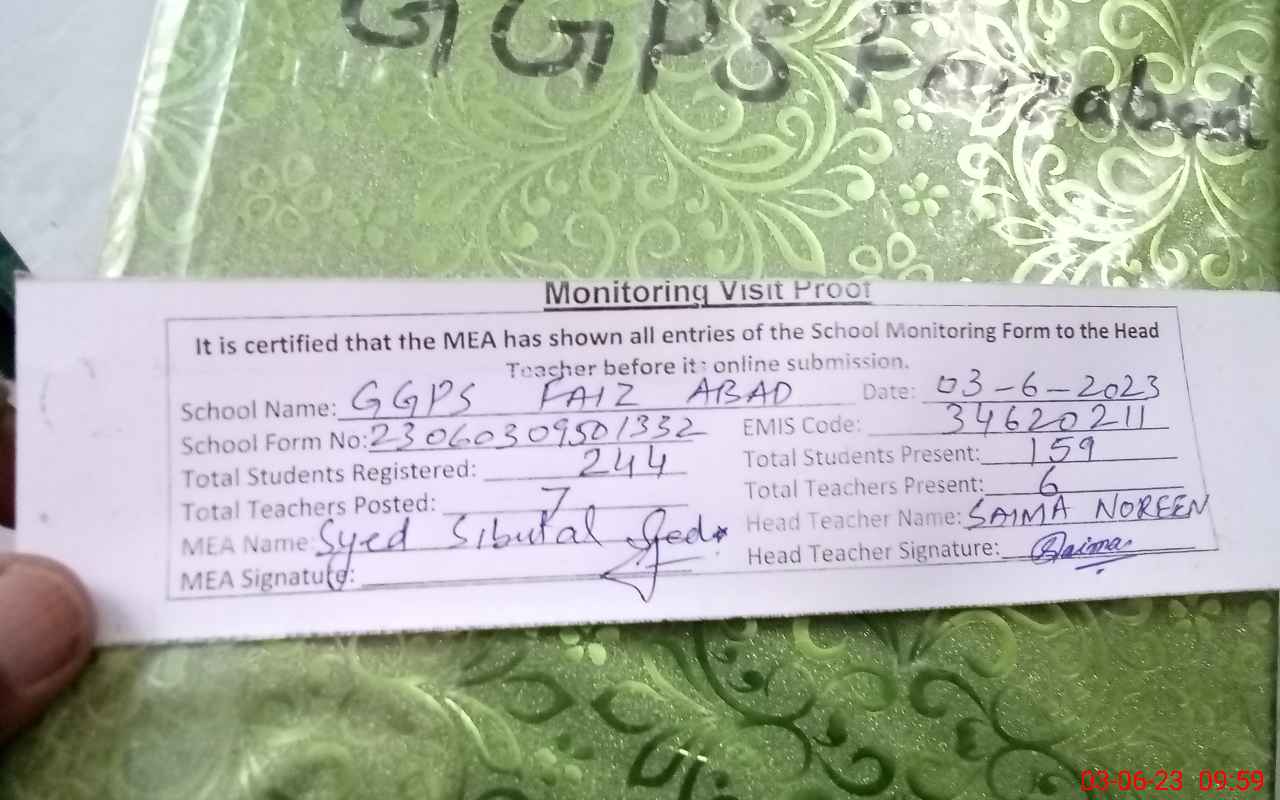 GGPS Faizabad
Monitoring Visit Proof
It is certified that the MEA has shown all entries of the School Monitoring Form to the Head
Teacher before its online submission.
School Name: GGPS FAIZ ABAD Date: 03-6-2023
School Form No: 23060309501332 EMIS Code: 34620211
Total Students Registered: 244 Total Students Present: 159
Total Teachers Posted: 7 Total Teachers Present: 6
MEA Name: Syed Head Teacher Name: SAIMA NOREEN
MEA Signature: Head Teacher Signature: Saima
03-06-23 09:59